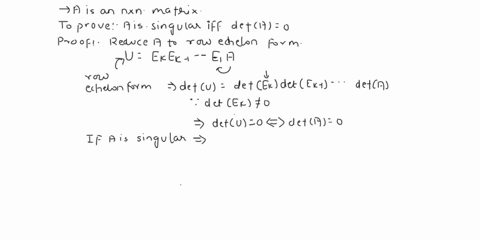 → A is an nxn matrix.
To prove:- A is singular iff det(A) = 0
Proof:- Reduce A to row echelon form.
U = EₖEₖ₋₁ --- E₁A
row
echelon form ⇒ det(U) = det(Eₖ)det(Eₖ₋₁) ---- det(A)
∵ det(Eₖ) ≠ 0
⇒ det(U)=0 ⇔ det(A)=0
If A is singular ⇒